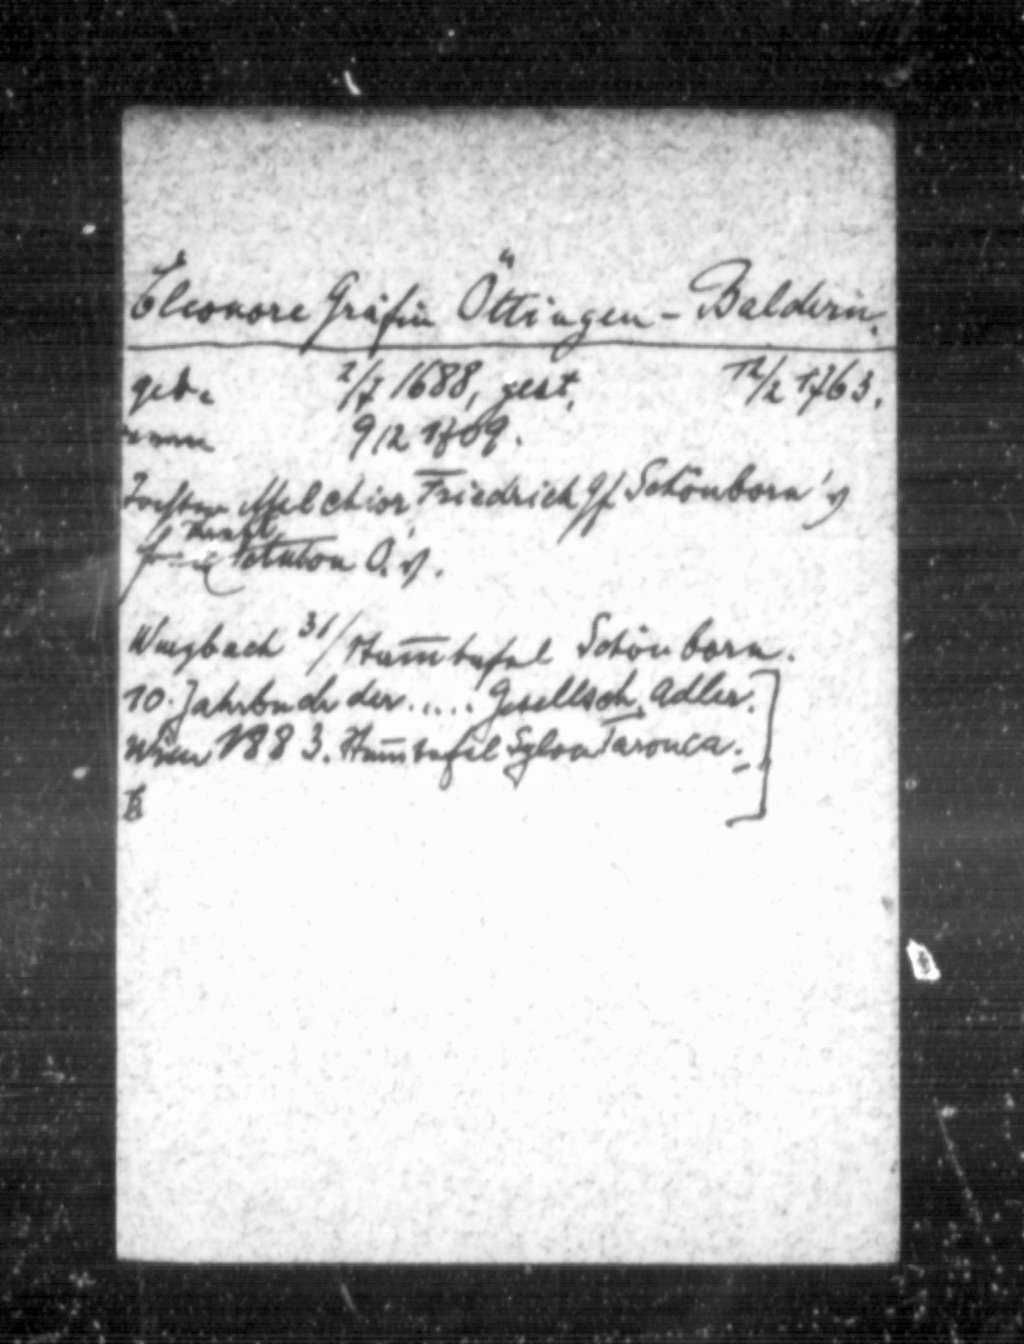 Eleonore Gräfin Öttingen-Baldern.
geb. 2/7 1688, gest. 12/2 1763.
9/2 1709.
Melchior Friedrich Gf Schönborn
Wurzbach 31/ Stam̅tafel Schönborn.
10. Jahrbuch der..... Gesellsch. Adler.
Wien 1883. Stam̅tafel Sylva Tarouca.